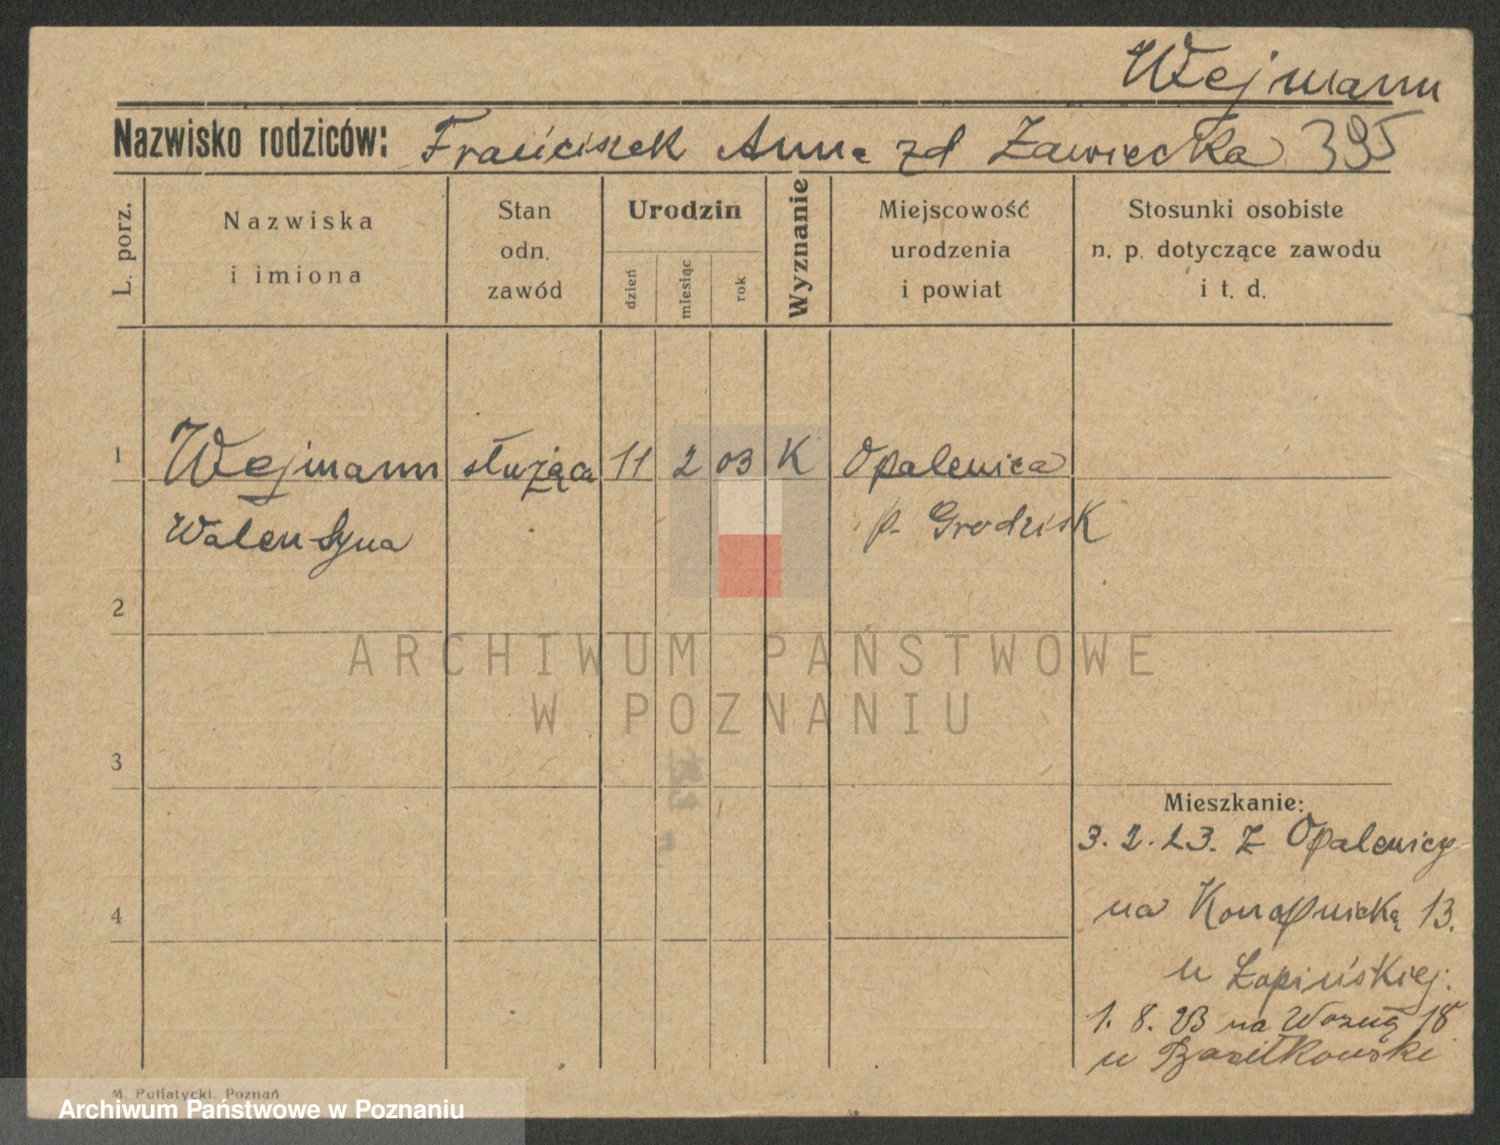 Wejmann
Nazwisko rodziców: Franciszek Anna zd Zawiecka 395
L. porz.
Nazwiska
i imiona
Stan
odn.
zawód
Urodzin
dzień
miesiąc
rok
Wyznanie
Miejscowość
urodzenia
i powiat
Stosunki osobiste
n. p. dotyczące zawodu
i t. d.
1 Wejmann służąca 11 2 03 K Opalenica
Walentyna p. Grodzisk
2
ARCHIWUM PAŃSTWOWE
W POZNANIU
3
Mieszkanie:
3. 2. 23. z Opalenicy
4
na Konopnicką 13.
u Łapińskiej.
1. 8. 23 na Woźną 18
u
M. Putiatycki, Poznań
Archiwum Państwowe w Poznaniu